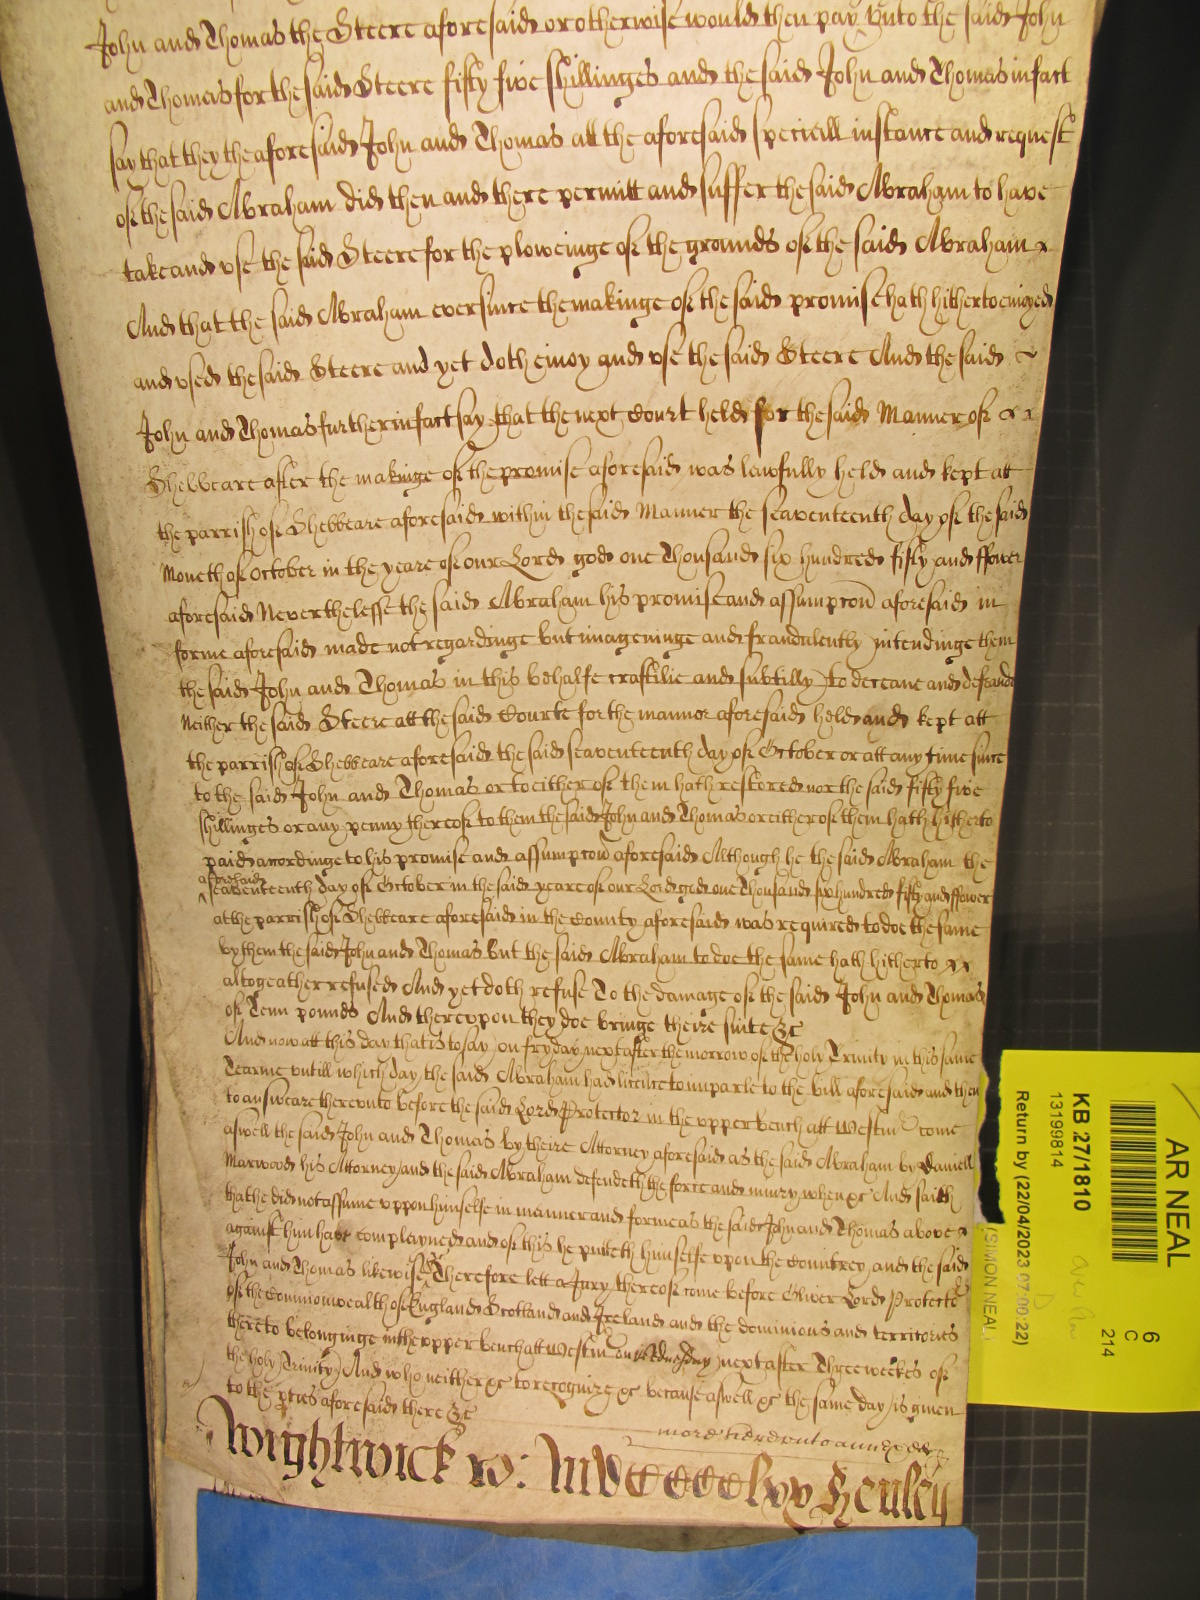 John and Thomas the Steere aforesaid or otherwise would then pay vnto the said John
and Thomas for the said Steere fifty five shillinges and the said John and Thomas in fact
say that they the aforesaid John and Thomas att the aforesaid speciall instance and request
of the said Abraham did then and there permitt and suffer the said Abraham to have
take and vse the said Steere for the ploweinge of the grounds of the said Abraham
And that the said Abraham ever since the makinge of the said promise hath hitherto enioyed
and vsed the said Steere and yet doth enioy and vse the said Steere And the said
John and Thomas further in fact say that the next Court held for the said Manner of
Shebbeare after the makinge of the promise aforesaid was lawfully held and kept att
the parrish of Shebbeare aforesaid within the said Manner the seaventeenth day of the said
Moneth of October in the yeare of our Lord god one Thousand six hundred fifty and ffower
aforesaid Neverthelesse the said Abraham his promise and assumpcon aforesaid in
forme aforesaid made not regardinge but imageninge and fraudulently intendinge them
the said John and Thomas in this behalfe craftilie and subtilly to deceave and defraude
Neither the said Steere att the said Courte for the mannor aforesaid held and kept att
the parrish of Shebbeare aforesaid the said seaventeenth day of October or att any time since
to the said John and Thomas or to either of them hath restored nor the said fifty five
shillinges or any penny thereof to them the said John and Thomas or either of them hath hitherto
paid accordinge to his promise and assumpcon aforesaid Although he the said Abraham the
aforesaid
seaventeenth day of October in the said yeare of our Lord god one Thousand six hundred fifty and ffower
at the parrish of Shebbeare aforesaid in the County aforesaid was required to doe the same
by them the said John and Thomas But the said Abraham to doe the same hath hitherto
altogeather refused And yet doth refuse To the damage of the said John and Thomas
of Tenn pounds And therevpon they doe bringe theire suite &c
And now att this day that is to say on fryday next after the morrow of the holy Trinity in this same
Tearme vntill which day the said Abraham had licence to imparle to the bill aforesaid and then
to answeare therevnto before the said Lord Protector in the vpper bench att Westm come
aswell the said John and Thomas by theire Attorney aforesaid as the said Abraham by Daniell
Marwood his Attorney and the said Abraham defendeth the force and iniury when &c And saith
that he did not assume vppon himselfe in manner and forme as the said John and Thomas above
against him have complayned and of this he putteth himselfe vpon the Countrey and the said
John and Thomas likewise &c Therefore lett a Jury thereof come before Oliver Lord Protector
of the Commonwealth of England Scotland and Ireland and the dominions and territories
thereto belonginge in the vpper bench att Westm on wednesday next after Three weekes of
the holy Trinity And who neither &c to recognize &c because aswell &c the same day is given
to the pties aforesaid there &c
more herevnto annexed
Wightwick
Henley
AR NEAL
KB 27/1810
13199814
Return by (22/04/2023 07:00:22)
(SIMON NEAL)
6
C
214